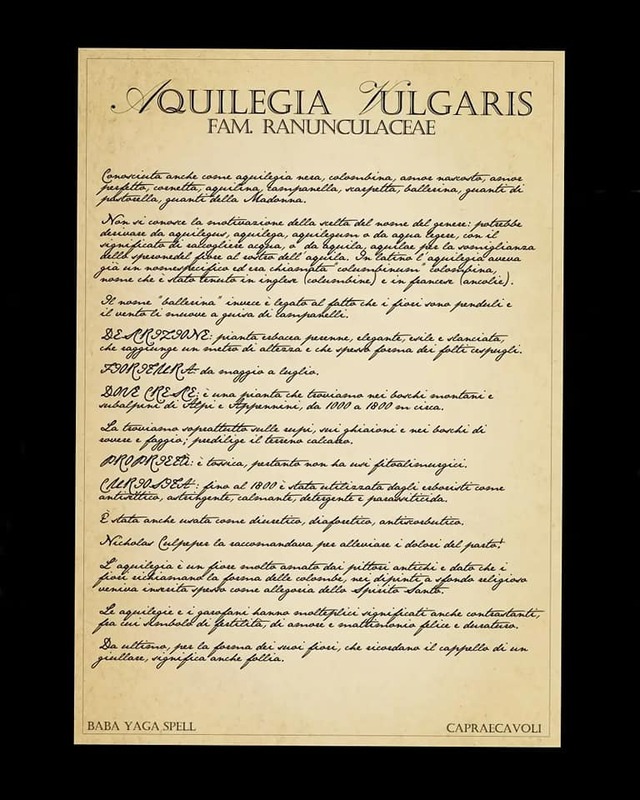 AQUILEGIA VULGARIS
FAM. RANUNCULACEAE
Conosciuta anche come aquilegia nera, colombina, amor nascosto, amor
perfetto, cornetta, aquilina, campanella, scarpetta, ballerina, guanti di
pastorella, guanti della Madonna.
Non si conosce la motivazione della scelta del nome del genere: potrebbe
derivare da aquilegus, aquilega, aquilegum o da aqua legere, con il
significato di raccogliere acqua, o da aquila, aquilae per la somiglianza
dello speronedel fiore al rostro dell'aquila. In latino l'aquilegia aveva
già un nomespecifico ed era chiamata "columbinum" colombina,
nome che è stato tenuto in inglese (columbine) e in francese (ancolie).
Il nome "ballerina" invece è legato al fatto che i fiori sono penduli e
il vento li muove a guisa di campanelli.
DESCRIZIONE: pianta erbacea perenne, elegante, esile e slanciata,
che raggiunge un metro di altezza e che spesso forma dei folti cespugli.
FIORITURA da maggio a luglio.
DOVE CRESCE: è una pianta che troviamo nei boschi montani e
subalpini di Alpi e Appennini, da 1000 a 1800 m circa.
La troviamo soprattutto sulle rupi, sui ghiaioni e nei boschi di
rovere e faggio; predilige il terreno calcareo.
PROPRIETÀ: è tossica, pertanto non ha usi fitoalimurgici.
CURIOSITÀ: fino al 1800 è stata utilizzata dagli erboristi come
antisettico, astringente, calmante, detergente e parassiticida.
È stata anche usata come diuretico, diaforetico, antiscorbutico.
Nicholas Culpeper la raccomandava per alleviare i dolori del parto!
L'aquilegia è un fiore molto amato dai pittori antichi e dato che i
fiori richiamano la forma delle colombe, nei dipinti a sfondo religioso
veniva inserita spesso come allegoria dello Spirito Santo.
Le aquilegie e i garofani hanno molteplici significati anche contrastanti,
fra cui simbolo di fertilità, di amore e matrimonio felice e duraturo.
Da ultimo, per la forma dei suoi fiori, che ricordano il cappello di un
giullare, significa anche follia.
BABA YAGA SPELL
CAPRAECAVOLI